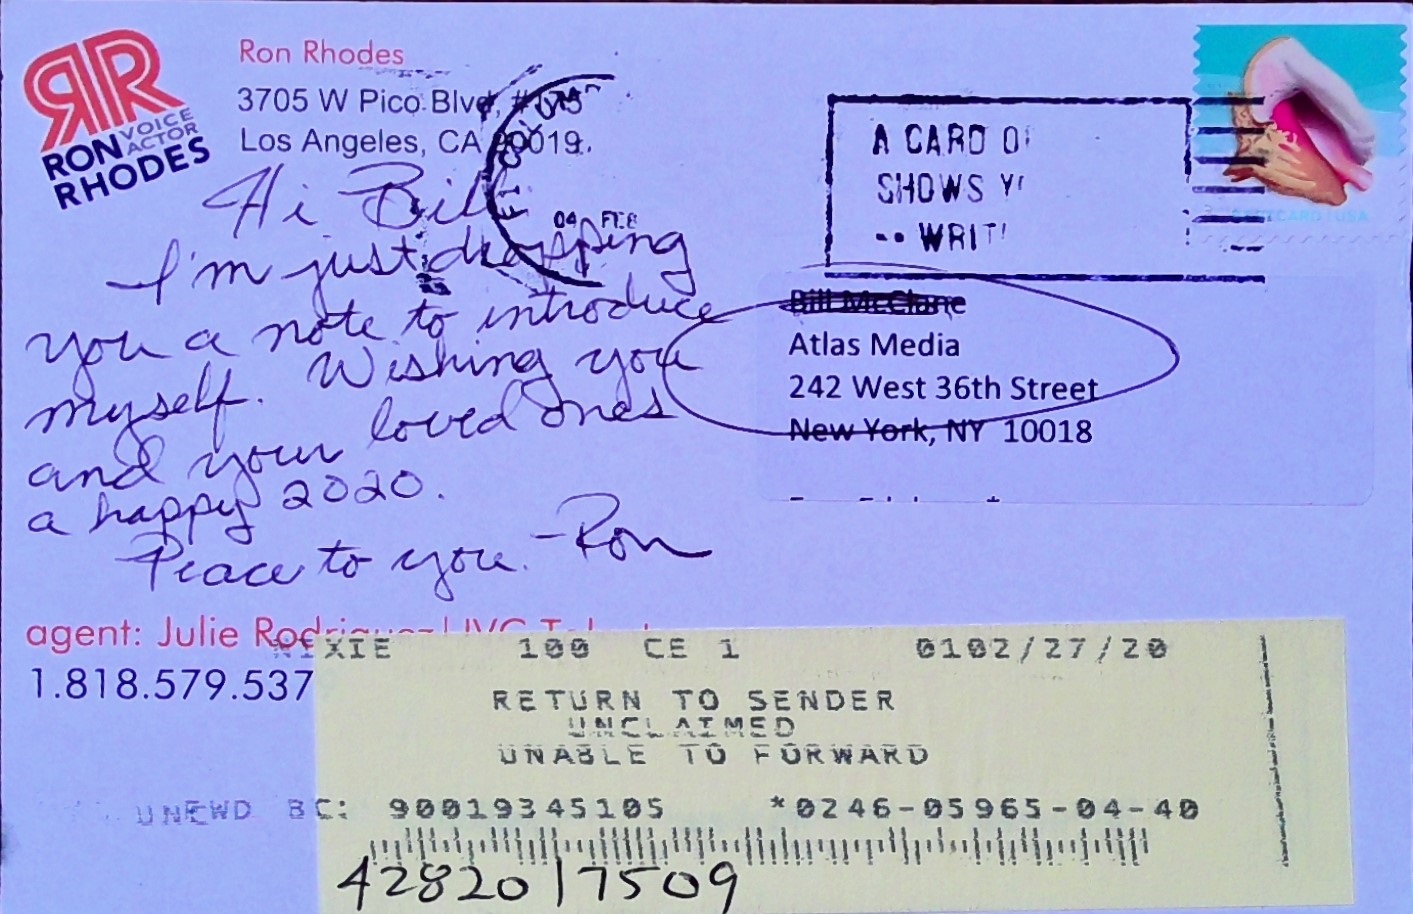 RR
RON VOICE ACTOR
RHODES
Ron Rhodes
3705 W Pico Blvd,
Los Angeles, CA 90019
04 FEB
A CARD
SHOWS
-- WRIT
Hi Bill
I'm just dropping
you a note to introduce
myself. Wishing you
and your loved ones
a happy 2020.
Peace to you. -Ron
Bill McClane
Atlas Media
242 West 36th Street
New York, NY 10018
agent: Julie Rodriguez
1.818.579.537
NIXIE 100 CE 1 0102/27/20
RETURN TO SENDER
UNCLAIMED
UNABLE TO FORWARD
BC: 90019345105 *0246-05965-04-40
4282017509